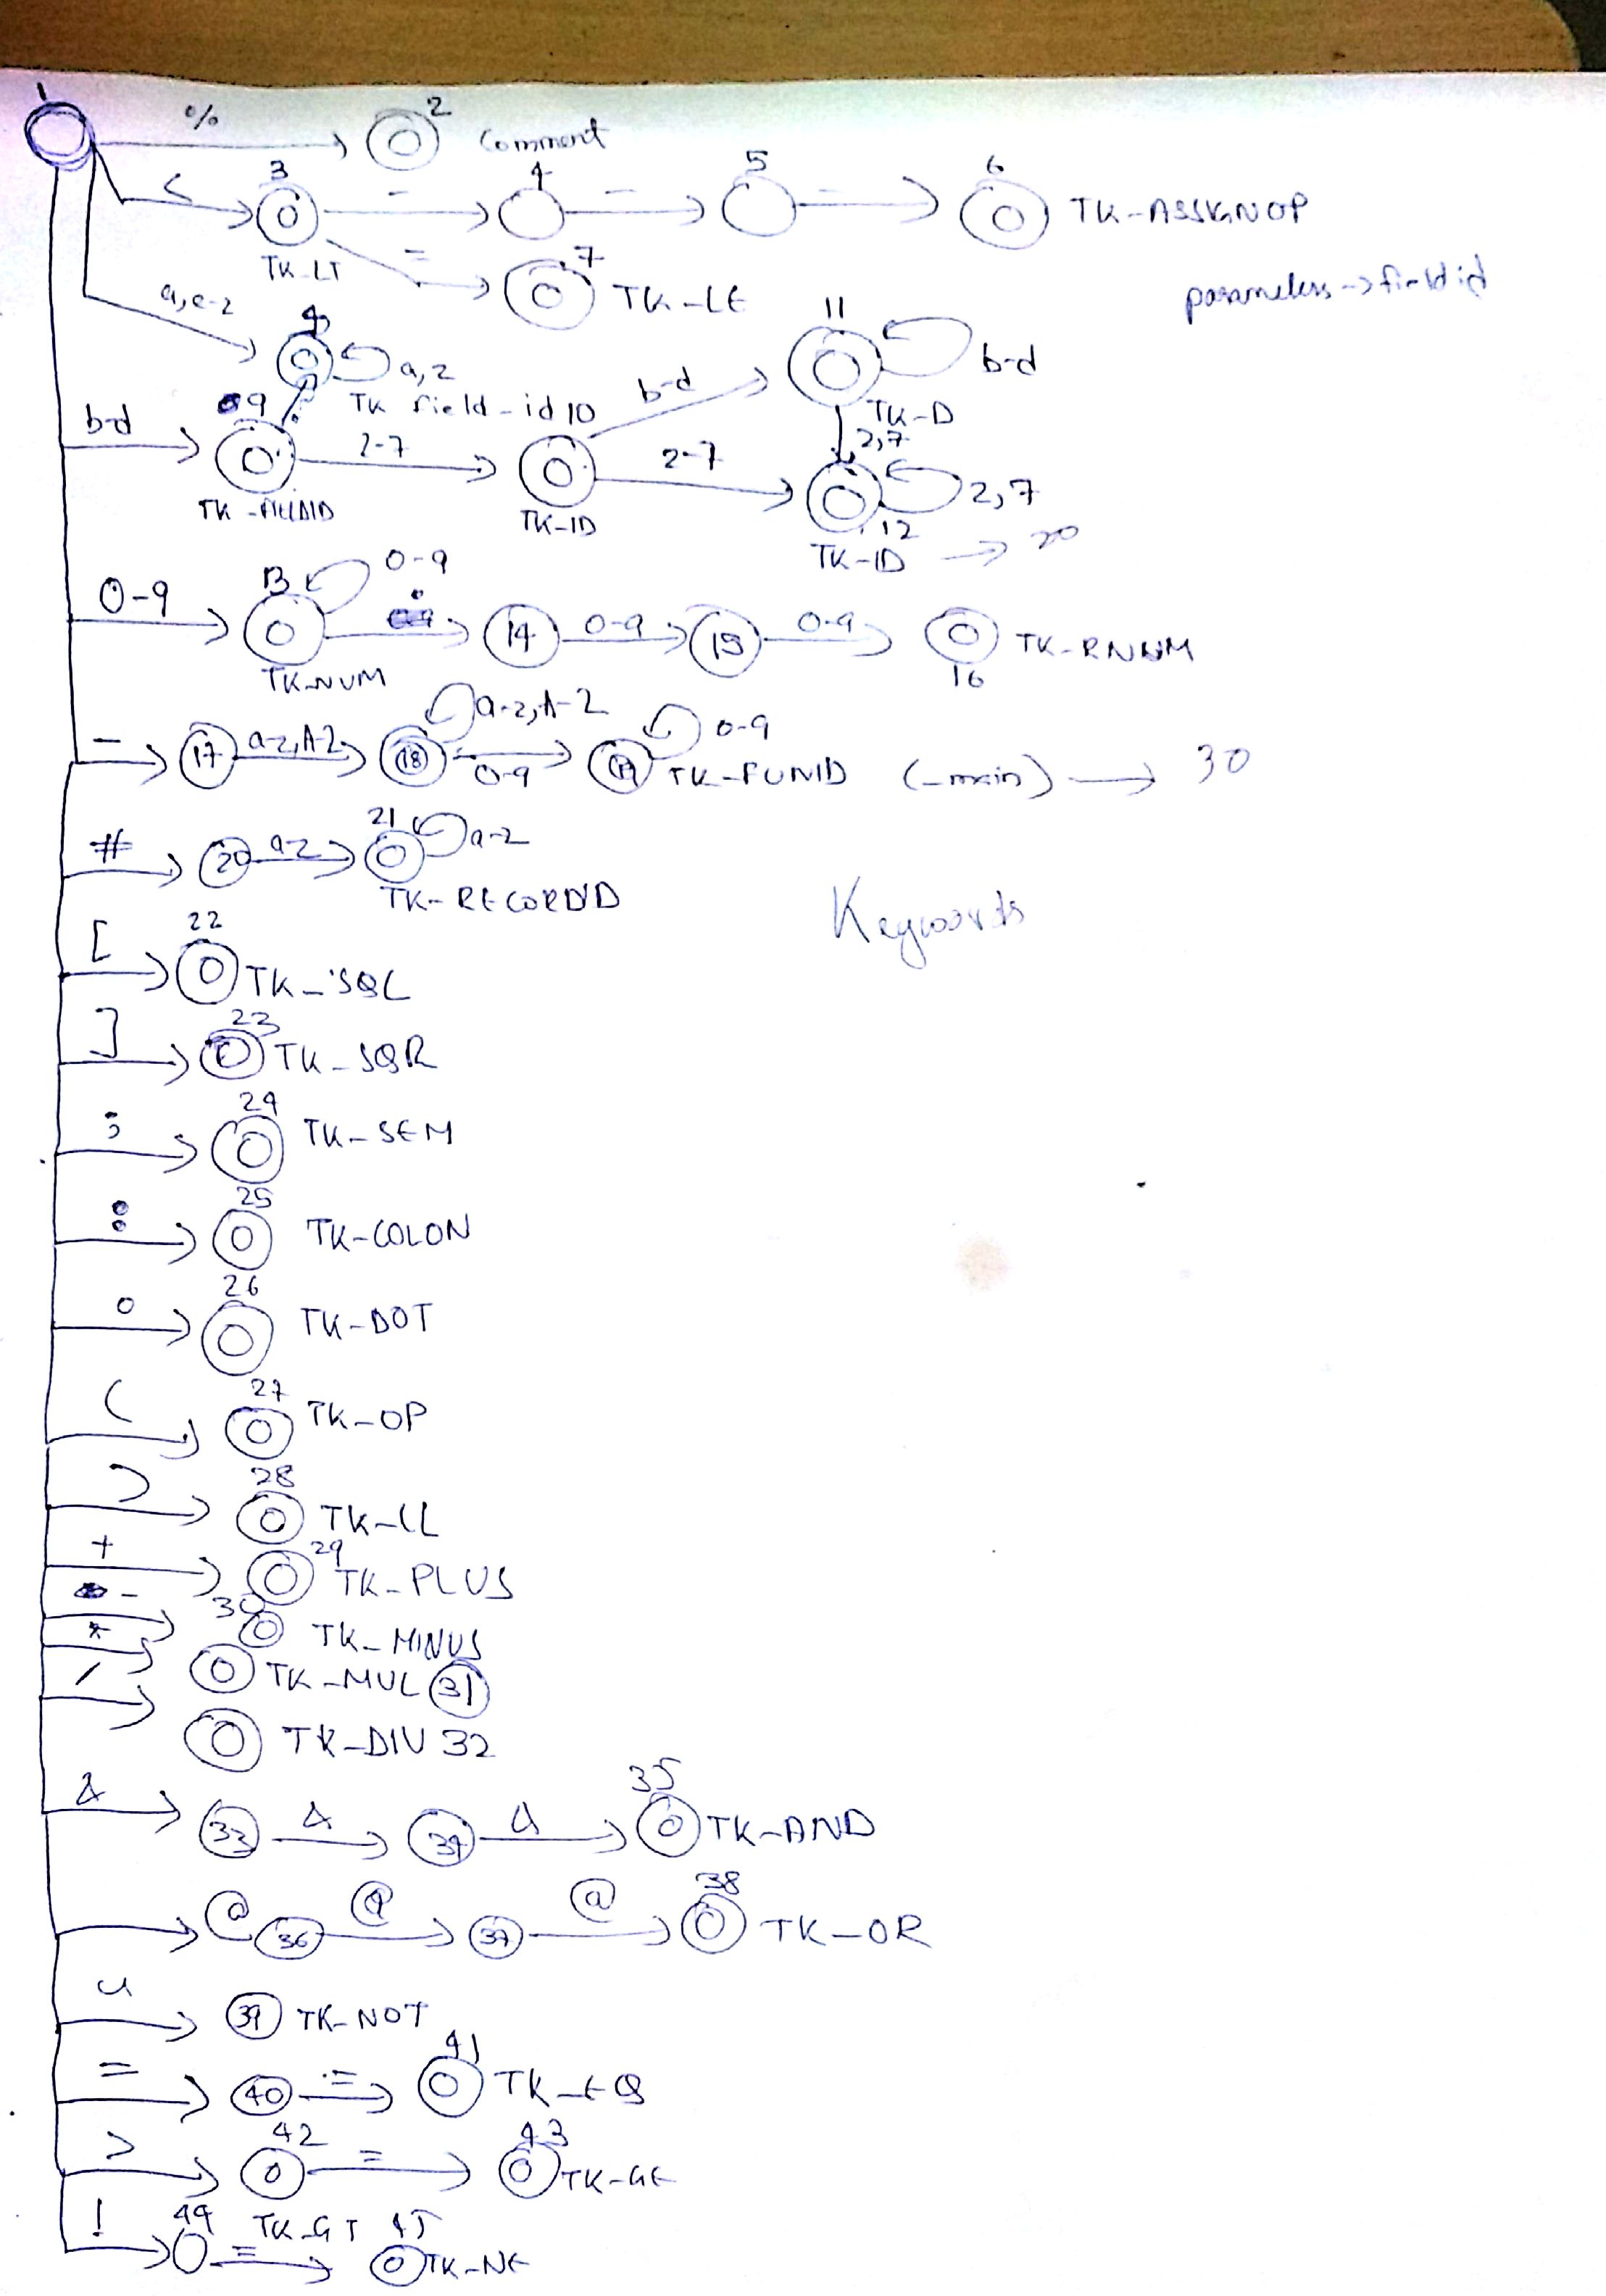 1 % 2 Comment
< 3 - 4 - 5 - 6 TK-ASSIGNOP
TK-LT = 7 TK-LE
parameters -> fieldid
a,e-z a,z
TK field-id
b-d 9 2-7 10 b-d 11 b-d
TK-FIELDID TK-ID TK-D
2-7 2,7 2,7
12
TK-ID -> 20
0-9 13 0-9 . 14 0-9 15 0-9 16 TK-RNUM
TK-NUM
_ 17 a-z,A-Z 18 a-z,A-Z 0-9 19 0-9 TK-FUNID (_main) -> 30
# 20 a-z 21 a-z
TK-RECORDID
Keywords
[ 22 TK_SQL
] 23 TK_SQR
; 24 TK-SEM
: 25 TK-COLON
. 26 TK-DOT
( 27 TK-OP
) 28 TK-CL
+ 29 TK-PLUS
- 30 TK-MINUS
* TK-MUL 31
/ TK-DIV 32
& 33 & 34 & 35 TK-AND
@ 36 @ 37 @ 38 TK-OR
39 TK-NOT
= 40 = 41 TK-EQ
> 42 = 43 TK-GE
TK-GT
! 44 = 45 TK-NE